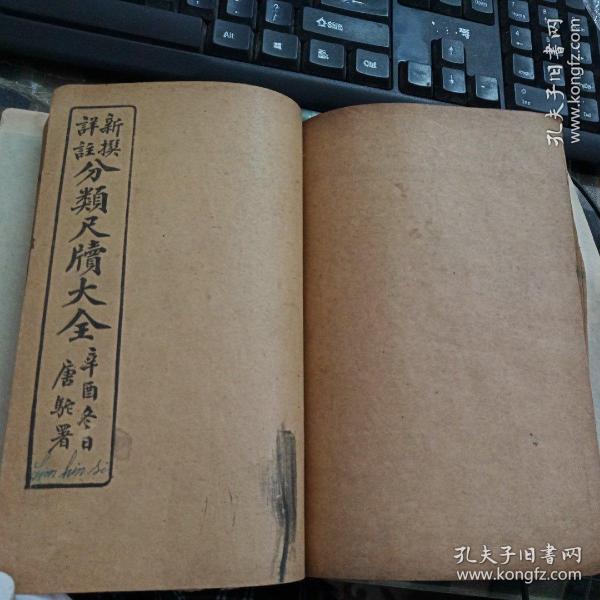 新撰
詳註
分類尺牘大全
辛酉冬日
唐駝署
Alt
Fn
Ctrl
孔夫子旧书网
www.kongfz.com
孔夫子旧书网
www.kongfz.com